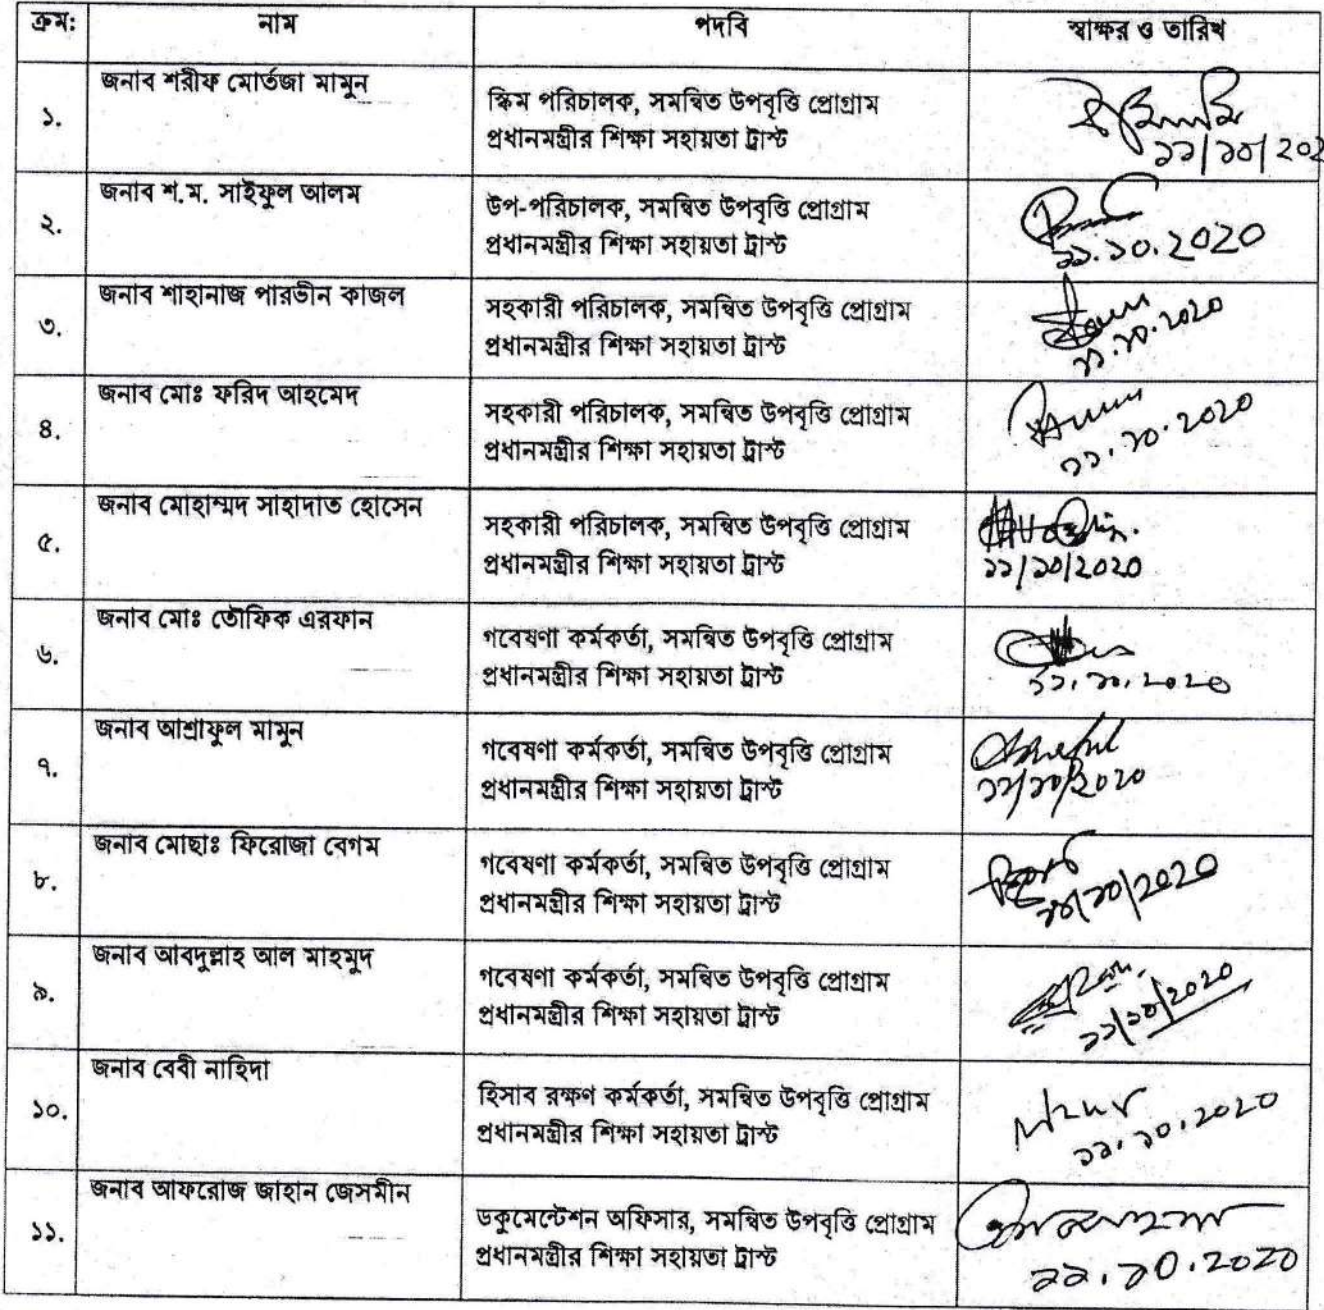 ক্রম: নাম পদবি স্বাক্ষর ও তারিখ
১. জনাব শরীফ মোর্তজা মামুন
স্কিম পরিচালক, সমন্বিত উপবৃত্তি প্রোগ্রাম
প্রধানমন্ত্রীর শিক্ষা সহায়তা ট্রাস্ট
১১/১০/202
২. জনাব শ.ম. সাইফুল আলম
উপ-পরিচালক, সমন্বিত উপবৃত্তি প্রোগ্রাম
প্রধানমন্ত্রীর শিক্ষা সহায়তা ট্রাস্ট
১১.১০.2020
৩. জনাব শাহানাজ পারভীন কাজল
সহকারী পরিচালক, সমন্বিত উপবৃত্তি প্রোগ্রাম
প্রধানমন্ত্রীর শিক্ষা সহায়তা ট্রাস্ট
১১.১০.2020
৪. জনাব মোঃ ফরিদ আহমেদ
সহকারী পরিচালক, সমন্বিত উপবৃত্তি প্রোগ্রাম
প্রধানমন্ত্রীর শিক্ষা সহায়তা ট্রাস্ট
১১.১০.2020
৫. জনাব মোহাম্মদ সাহাদাত হোসেন
সহকারী পরিচালক, সমন্বিত উপবৃত্তি প্রোগ্রাম
প্রধানমন্ত্রীর শিক্ষা সহায়তা ট্রাস্ট
১১/১০/2020
৬. জনাব মোঃ তৌফিক এরফান
গবেষণা কর্মকর্তা, সমন্বিত উপবৃত্তি প্রোগ্রাম
প্রধানমন্ত্রীর শিক্ষা সহায়তা ট্রাস্ট
১১.১০.2020
৭. জনাব আশ্রাফুল মামুন
গবেষণা কর্মকর্তা, সমন্বিত উপবৃত্তি প্রোগ্রাম
প্রধানমন্ত্রীর শিক্ষা সহায়তা ট্রাস্ট
১১/১০/2020
৮. জনাব মোছাঃ ফিরোজা বেগম
গবেষণা কর্মকর্তা, সমন্বিত উপবৃত্তি প্রোগ্রাম
প্রধানমন্ত্রীর শিক্ষা সহায়তা ট্রাস্ট
৯. জনাব আবদুল্লাহ আল মাহমুদ
গবেষণা কর্মকর্তা, সমন্বিত উপবৃত্তি প্রোগ্রাম
প্রধানমন্ত্রীর শিক্ষা সহায়তা ট্রাস্ট
১১/১০/2020
১০. জনাব বেবী নাহিদা
হিসাব রক্ষণ কর্মকর্তা, সমন্বিত উপবৃত্তি প্রোগ্রাম
প্রধানমন্ত্রীর শিক্ষা সহায়তা ট্রাস্ট
১১.১০.2020
১১. জনাব আফরোজ জাহান জেসমীন
ডকুমেন্টেশন অফিসার, সমন্বিত উপবৃত্তি প্রোগ্রাম
প্রধানমন্ত্রীর শিক্ষা সহায়তা ট্রাস্ট
১১.১০.2020